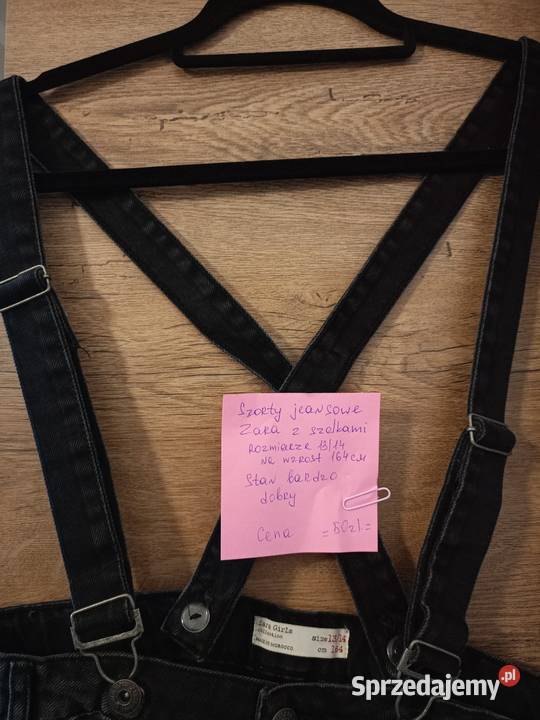 Szorty jeansowe
Zara z szelkami
Rozmiarze 13/14
na wzrost 164 cm
Stan bardzo
dobry
Cena = 50zł.=
Zara Girls
COLLECTION
MADE IN MOROCCO
size 13/14
cm 164
Sprzedajemy.pl